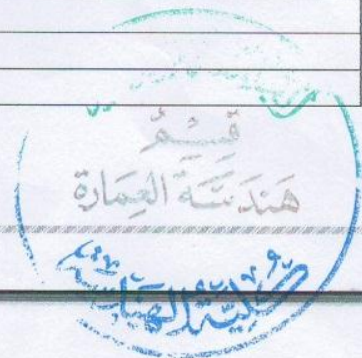 قسم
هندسة العمارة
كلية الهندسة